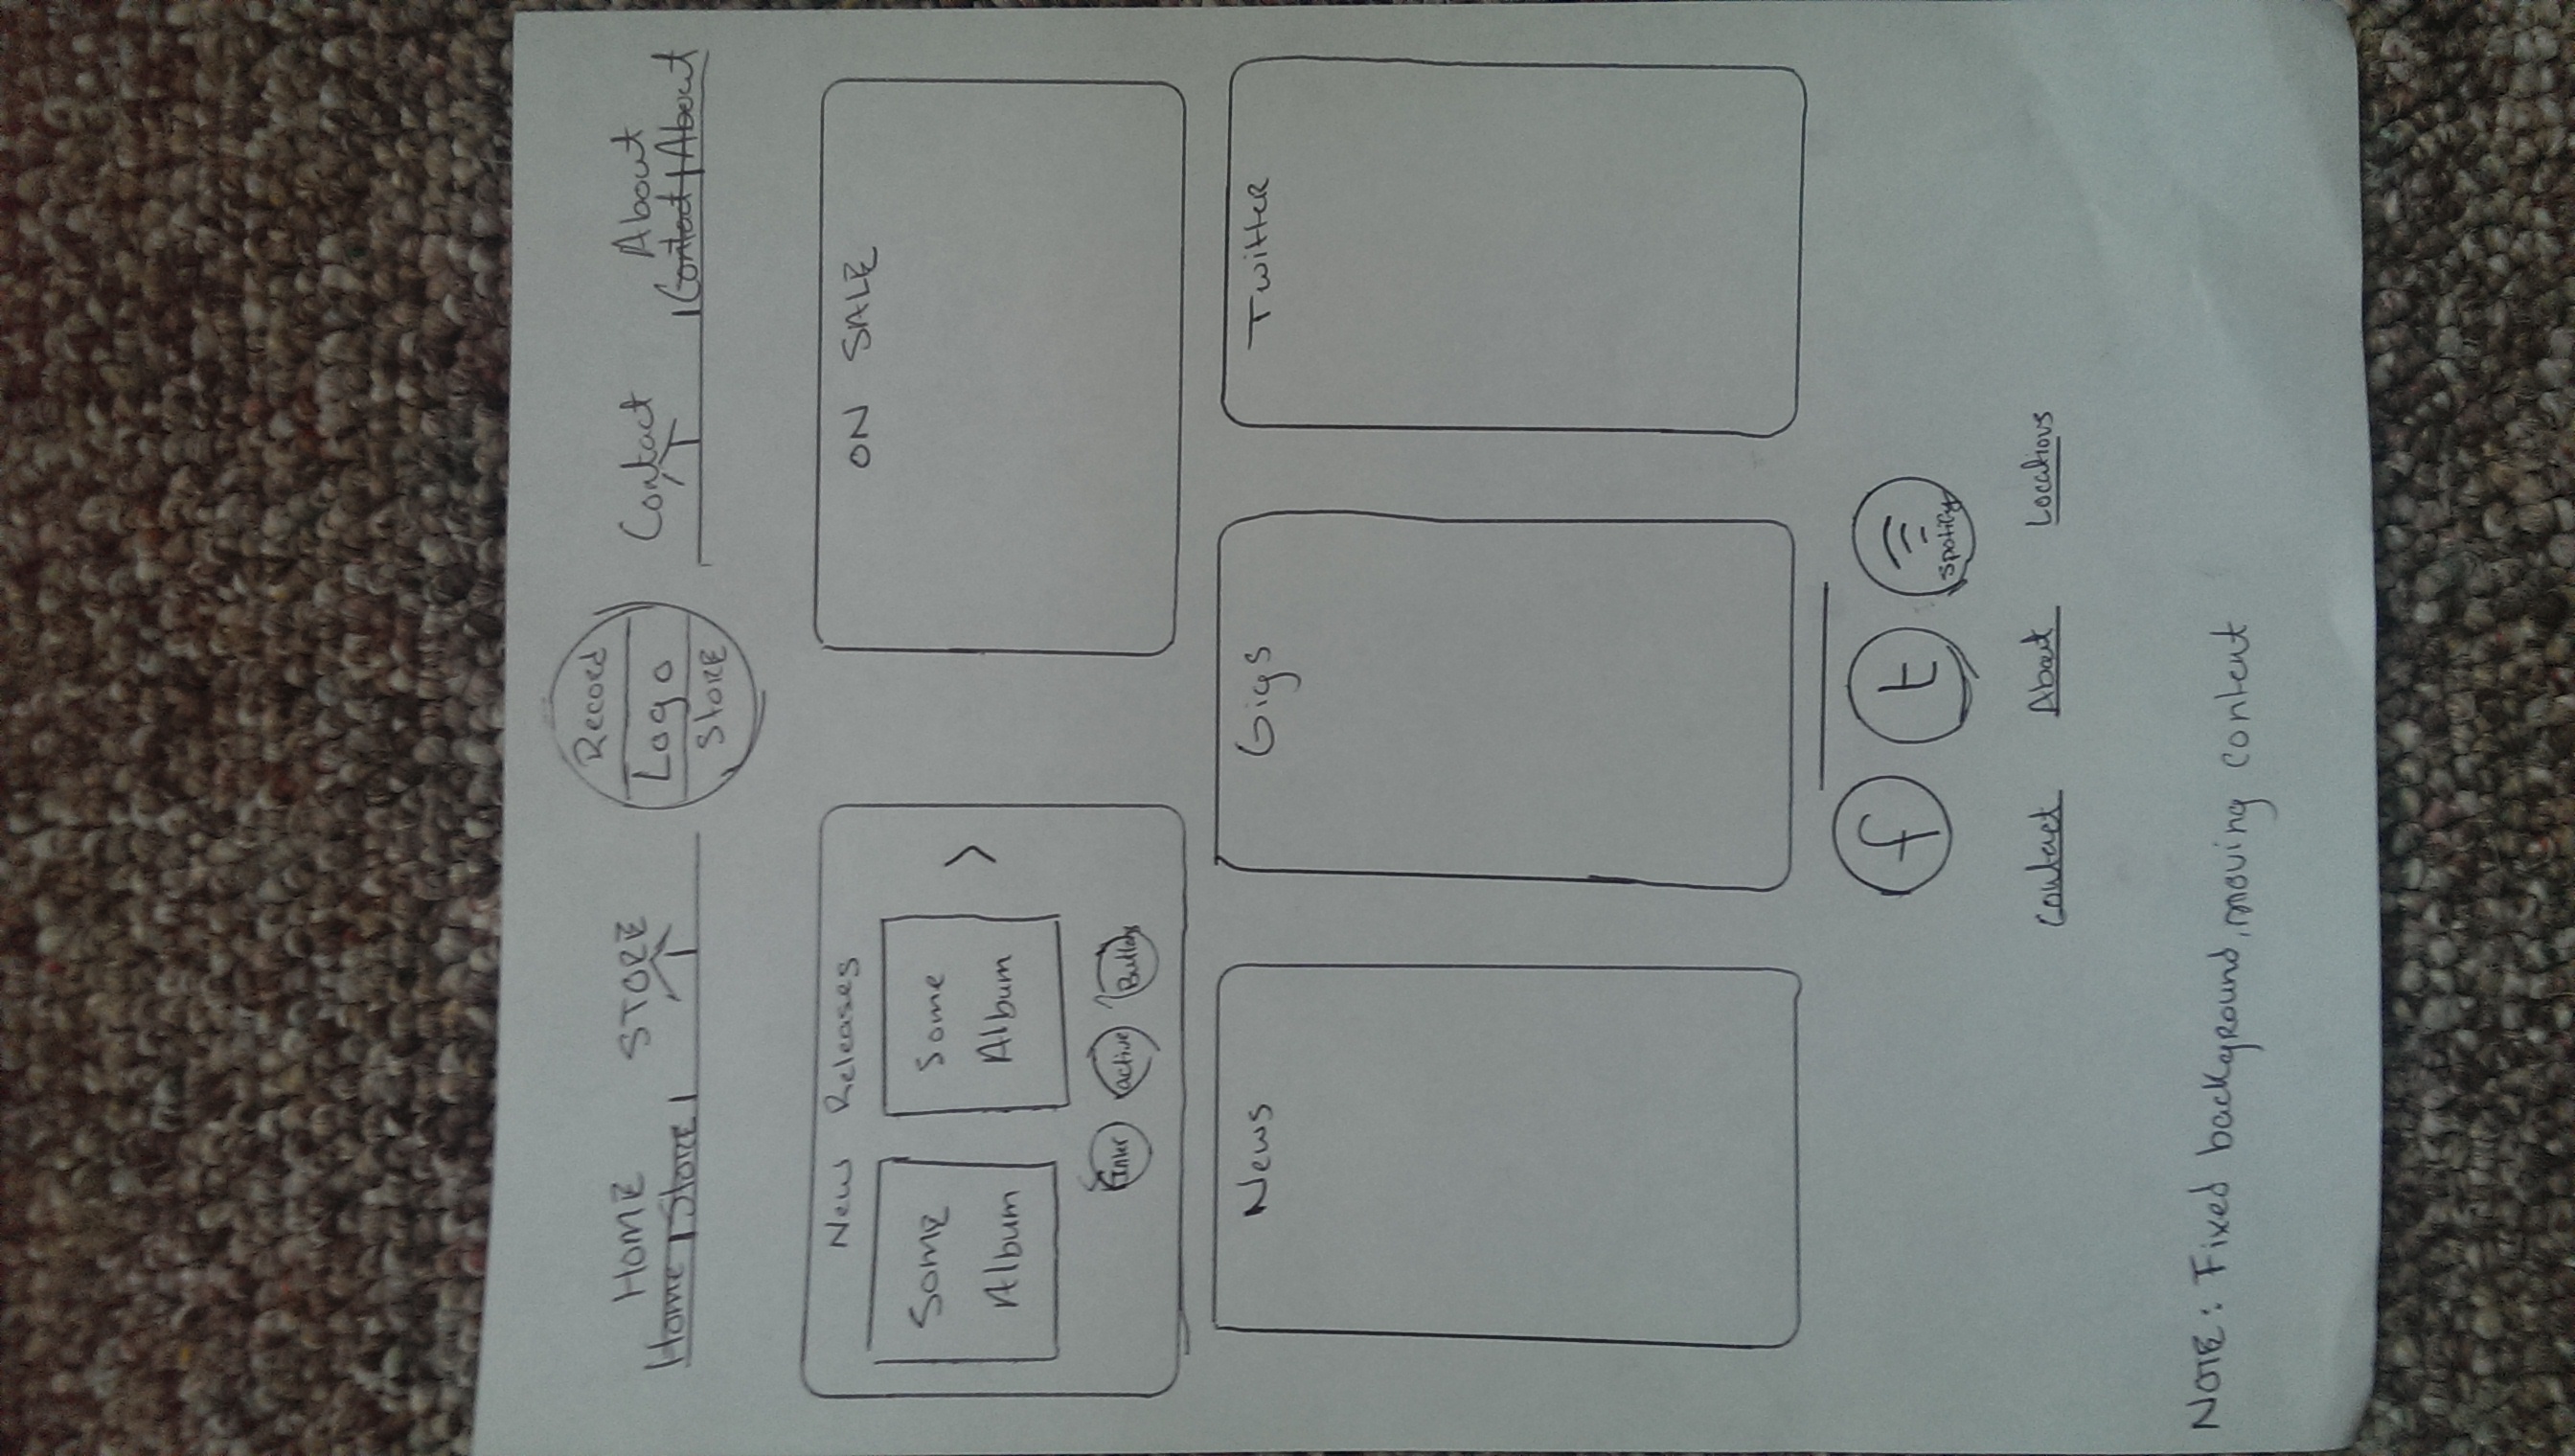 HOME STORE
Home | Store |
Record
Logo
Store
Contact About
| Contact | About
New Releases
Some
Album
Some
Album
>
Inter
active
Buttons
ON SALE
News
Gigs
Twitter
f t
Spotify
Contact About Locations
NOTE: Fixed background, moving content